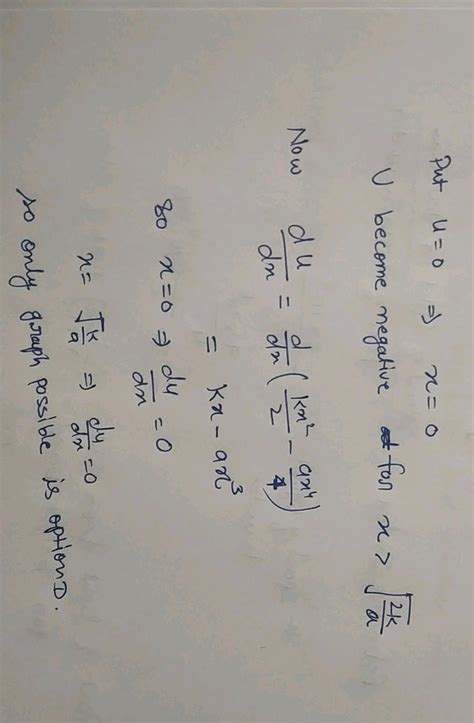 Put u=0 ⇒ x=0
U become negative for x > √(2k/a)
Now du/dx = d/dx (kx²/2 - ax⁴/4)
= kx - ax³
so x=0 ⇒ du/dx = 0
x= √(k/a) ⇒ du/dx = 0
so only graph possible is option D.